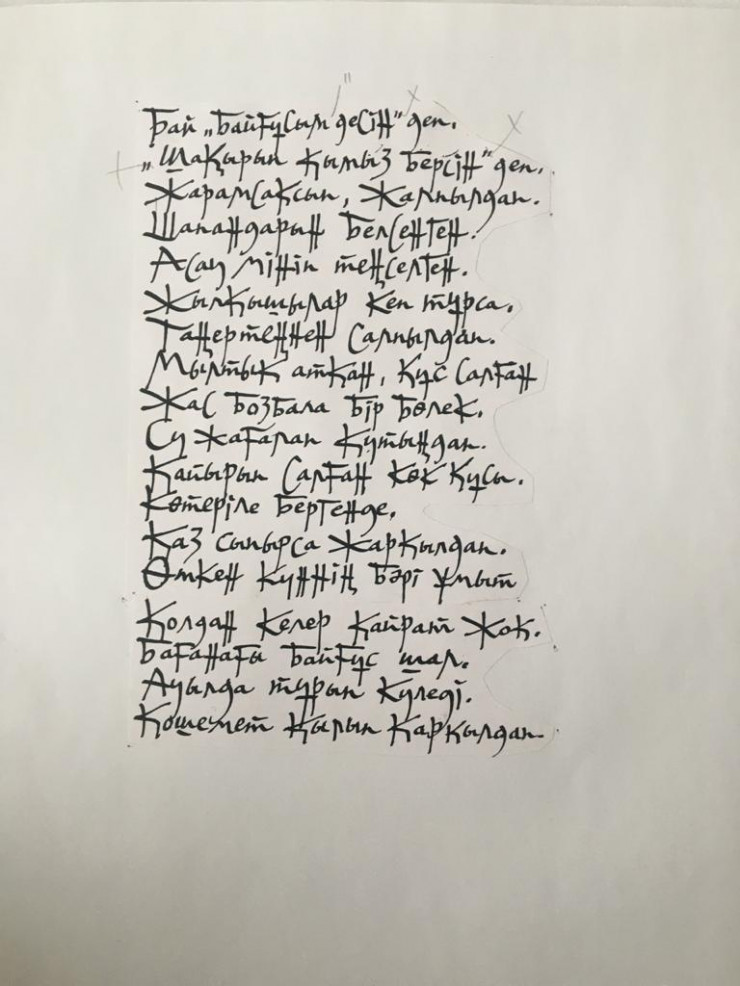 Бай „Байғұсым десін“ деп.
„Шақырып қымыз берсін“ деп.
Жарамсақсып, жалпылдап.
Шапандарын белсенген.
Асау мініп теңселген.
Жылқышылар кеп тұрса.
Таңертеңнен салпылдап.
Мылтық атқан, құс салған
Жас бозбала бір бөлек.
Су жағалап қутыңдап.
Қайырып салған көк құсы.
Көтеріле бергенде.
Қаз сыпырса жарқылдап.
Өткен күннің бәрі ұмыт
Қолдан келер қайрат жоқ.
Бағанағы байғұс шал.
Ауылда тұрып күледі.
Қошемет қылып қарқылдап.